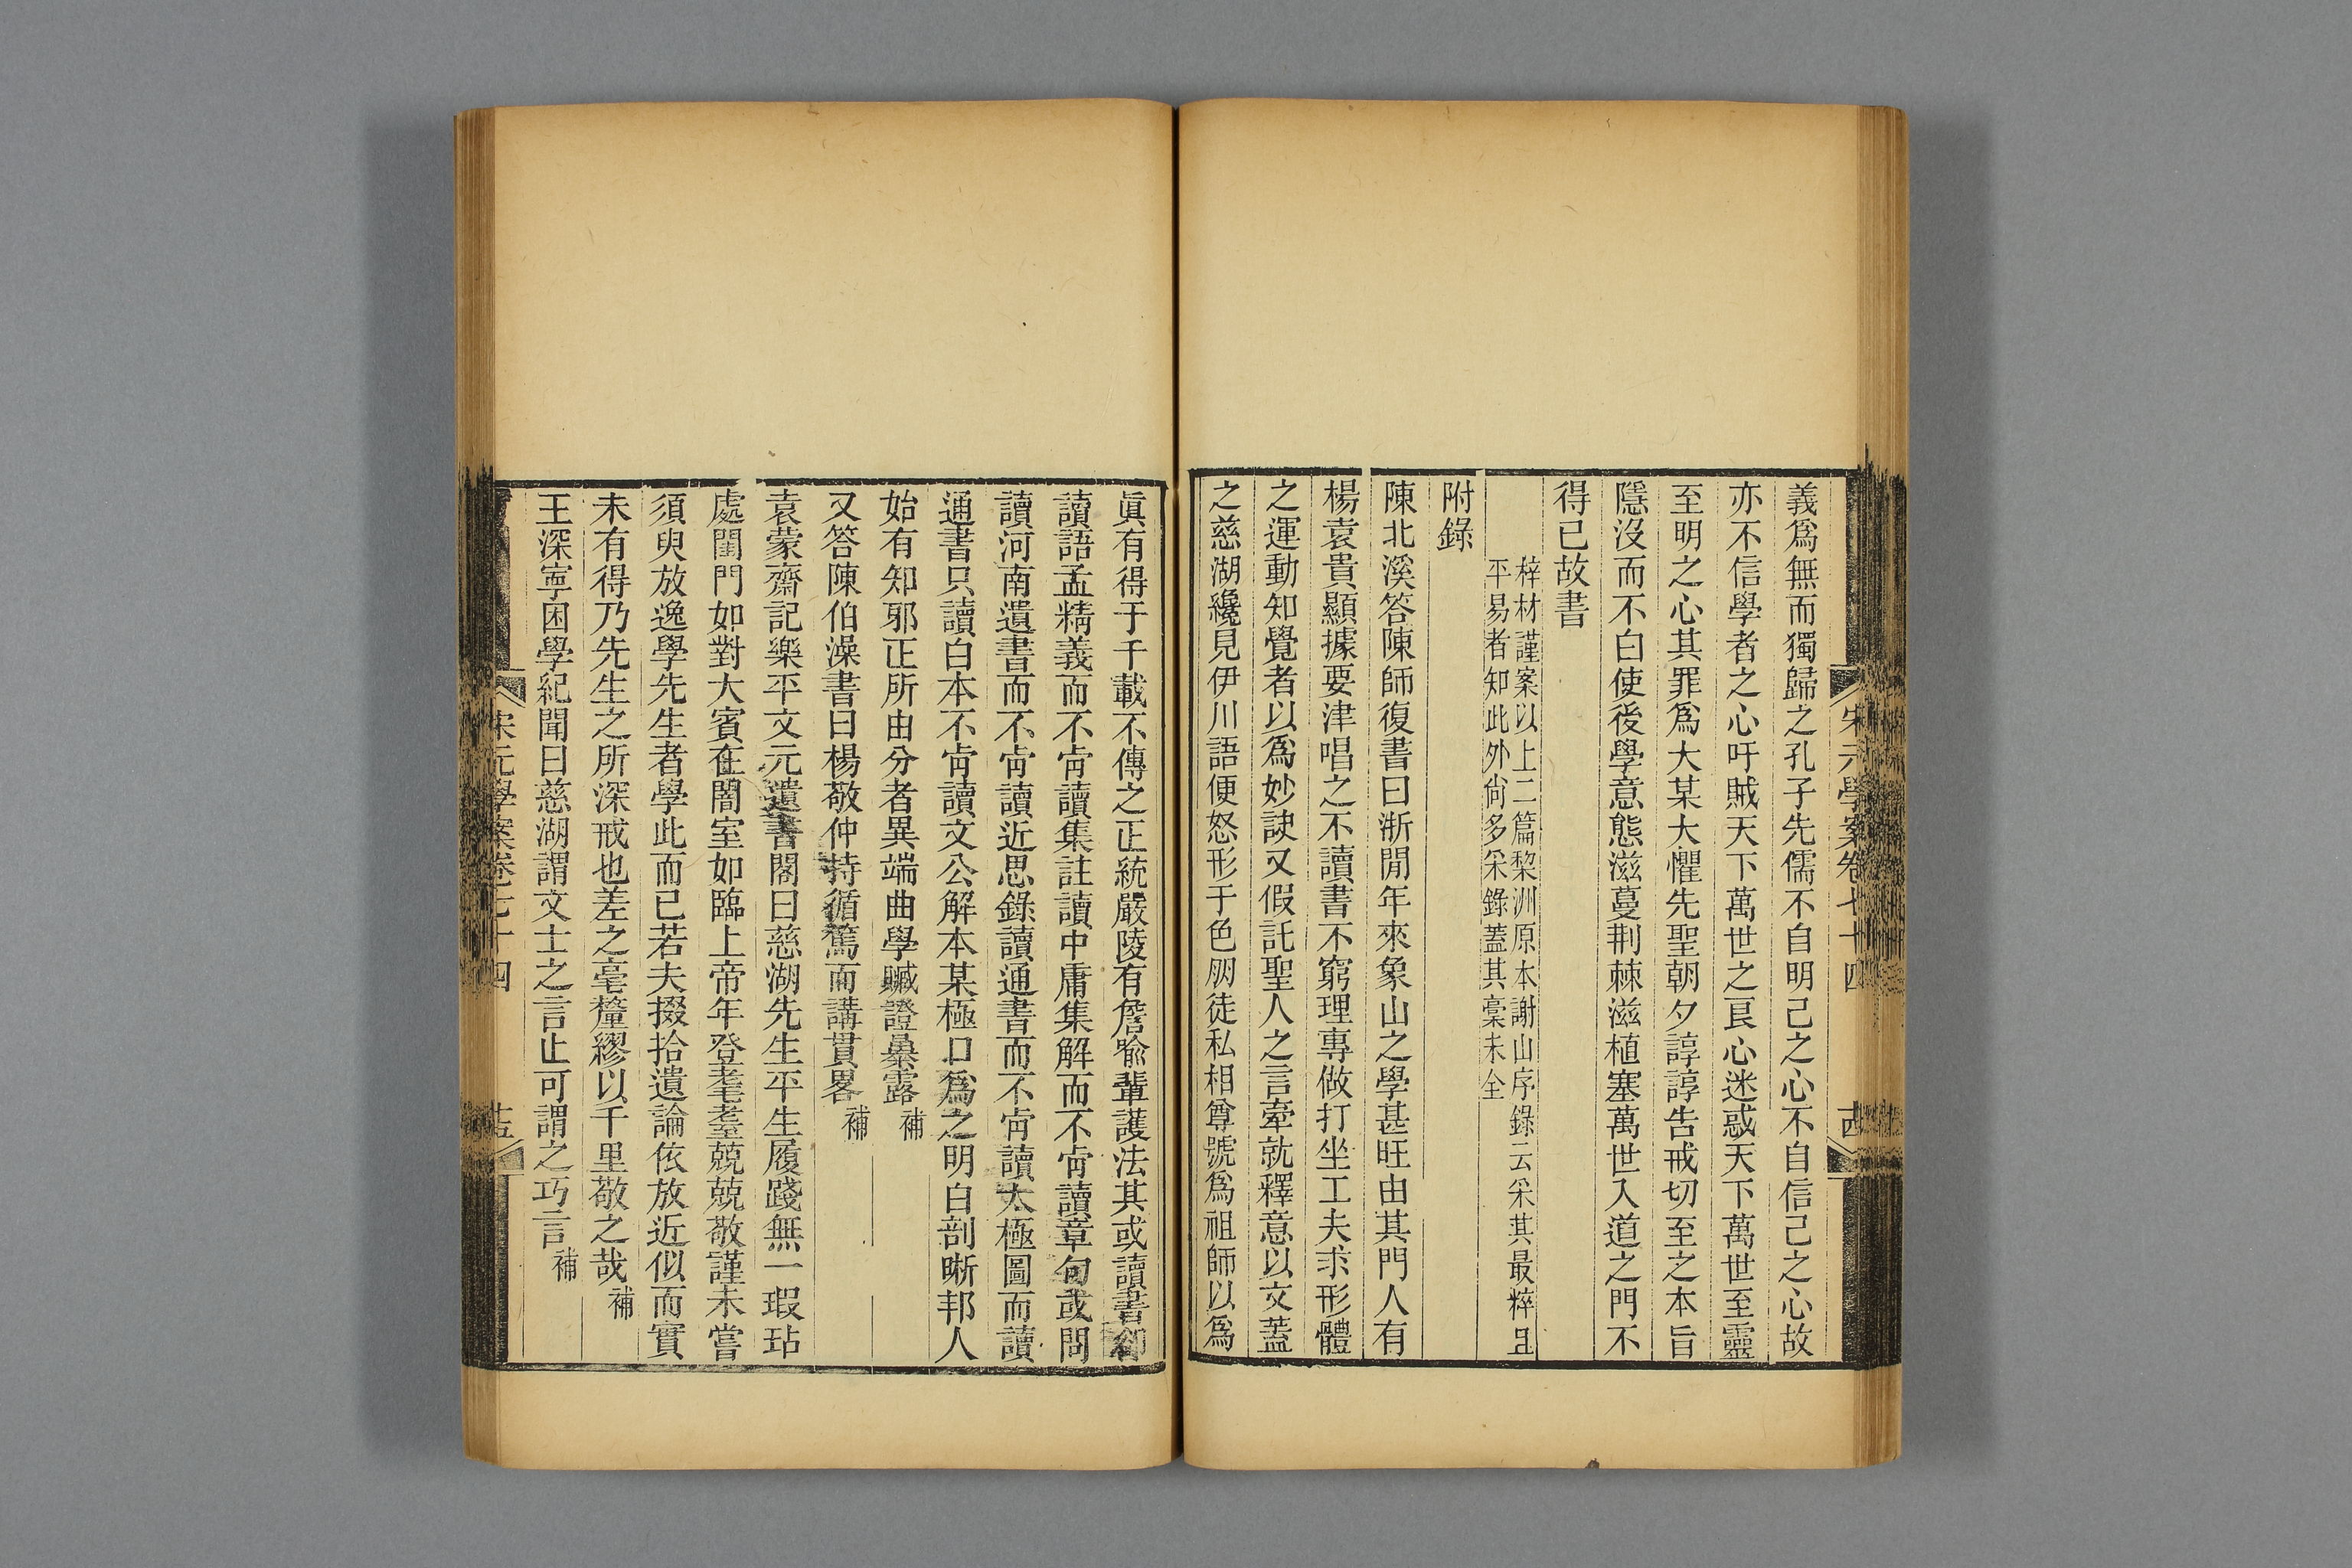 義爲無而獨歸之孔子先儒不自明己之心不自信己之心故
亦不信學者之心吁賊天下萬世之良心迷惑天下萬世至靈
至明之心其罪爲大某大懼先聖朝夕諄諄告戒切至之本旨
隱沒而不白使後學意態滋蔓荆棘滋植塞萬世入道之門不
得已故書
梓材謹案以上二篇黎洲原本謝山序錄云采其最粹且
平易者知此外尙多采錄蓋其稾未全
附錄
陳北溪答陳師復書曰浙閒年來象山之學甚旺由其門人有
楊袁貴顯據要津唱之不讀書不窮理專做打坐工夫求形體
之運動知覺者以爲妙訣又假託聖人之言牽就釋意以文蓋
之慈湖纔見伊川語便怒形于色朋徒私相尊號爲祖師以爲
宋元學案卷七十四
十四
眞有得于千載不傳之正統嚴陵有詹喻輩護法其或讀書卻
讀語孟精義而不肯讀集註讀中庸集解而不肯讀章句或問
讀河南遺書而不肯讀近思錄讀通書而不肯讀太極圖而讀
通書只讀白本不肯讀文公解本某極口爲之明白剖晰邦人
始有知邪正所由分者異端曲學贓證㬥露補
又答陳伯澡書曰楊敬仲持循篤而講貫畧補
袁蒙齋記樂平文元遺書閣曰慈湖先生平生履踐無一瑕玷
處閨門如對大賓在闇室如臨上帝年登耄耋兢兢敬謹未嘗
須臾放逸學先生者學此而已若夫掇拾遺論依放近似而實
未有得乃先生之所深戒也差之毫釐繆以千里敬之哉補
王深寧困學紀聞曰慈湖謂文士之言止可謂之巧言補
宋元學案卷七十四
十五